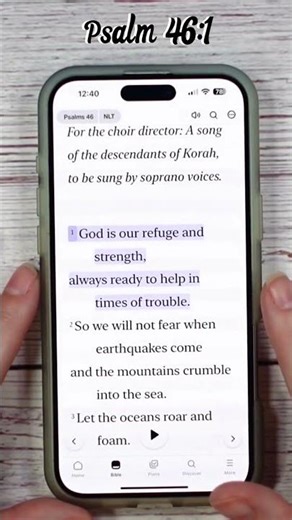 Psalm 46:1
12:40
78
Psalms 46 NLT
For the choir director: A song
of the descendants of Korah,
to be sung by soprano voices.
1 God is our refuge and
strength,
always ready to help in
times of trouble.
2 So we will not fear when
earthquakes come
and the mountains crumble
into the sea.
3 Let the oceans roar and
foam.
Home Bible Plans Discover More